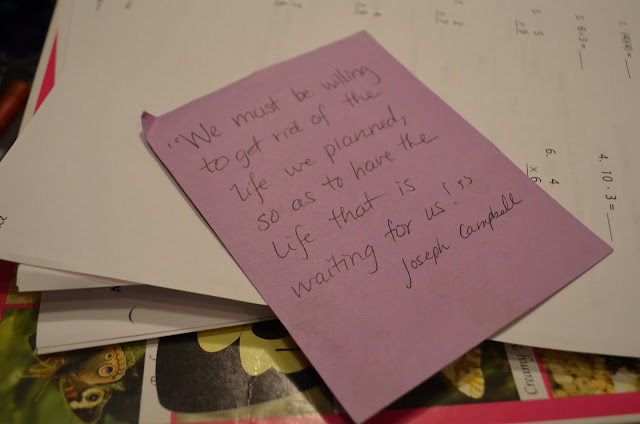 "We must be willing
to get rid of the
life we planned,
so as to have the
life that is
waiting for us!"
Joseph Campbell
4. 10 · 3 =
6. 4
x 6
3. 5
Creamy